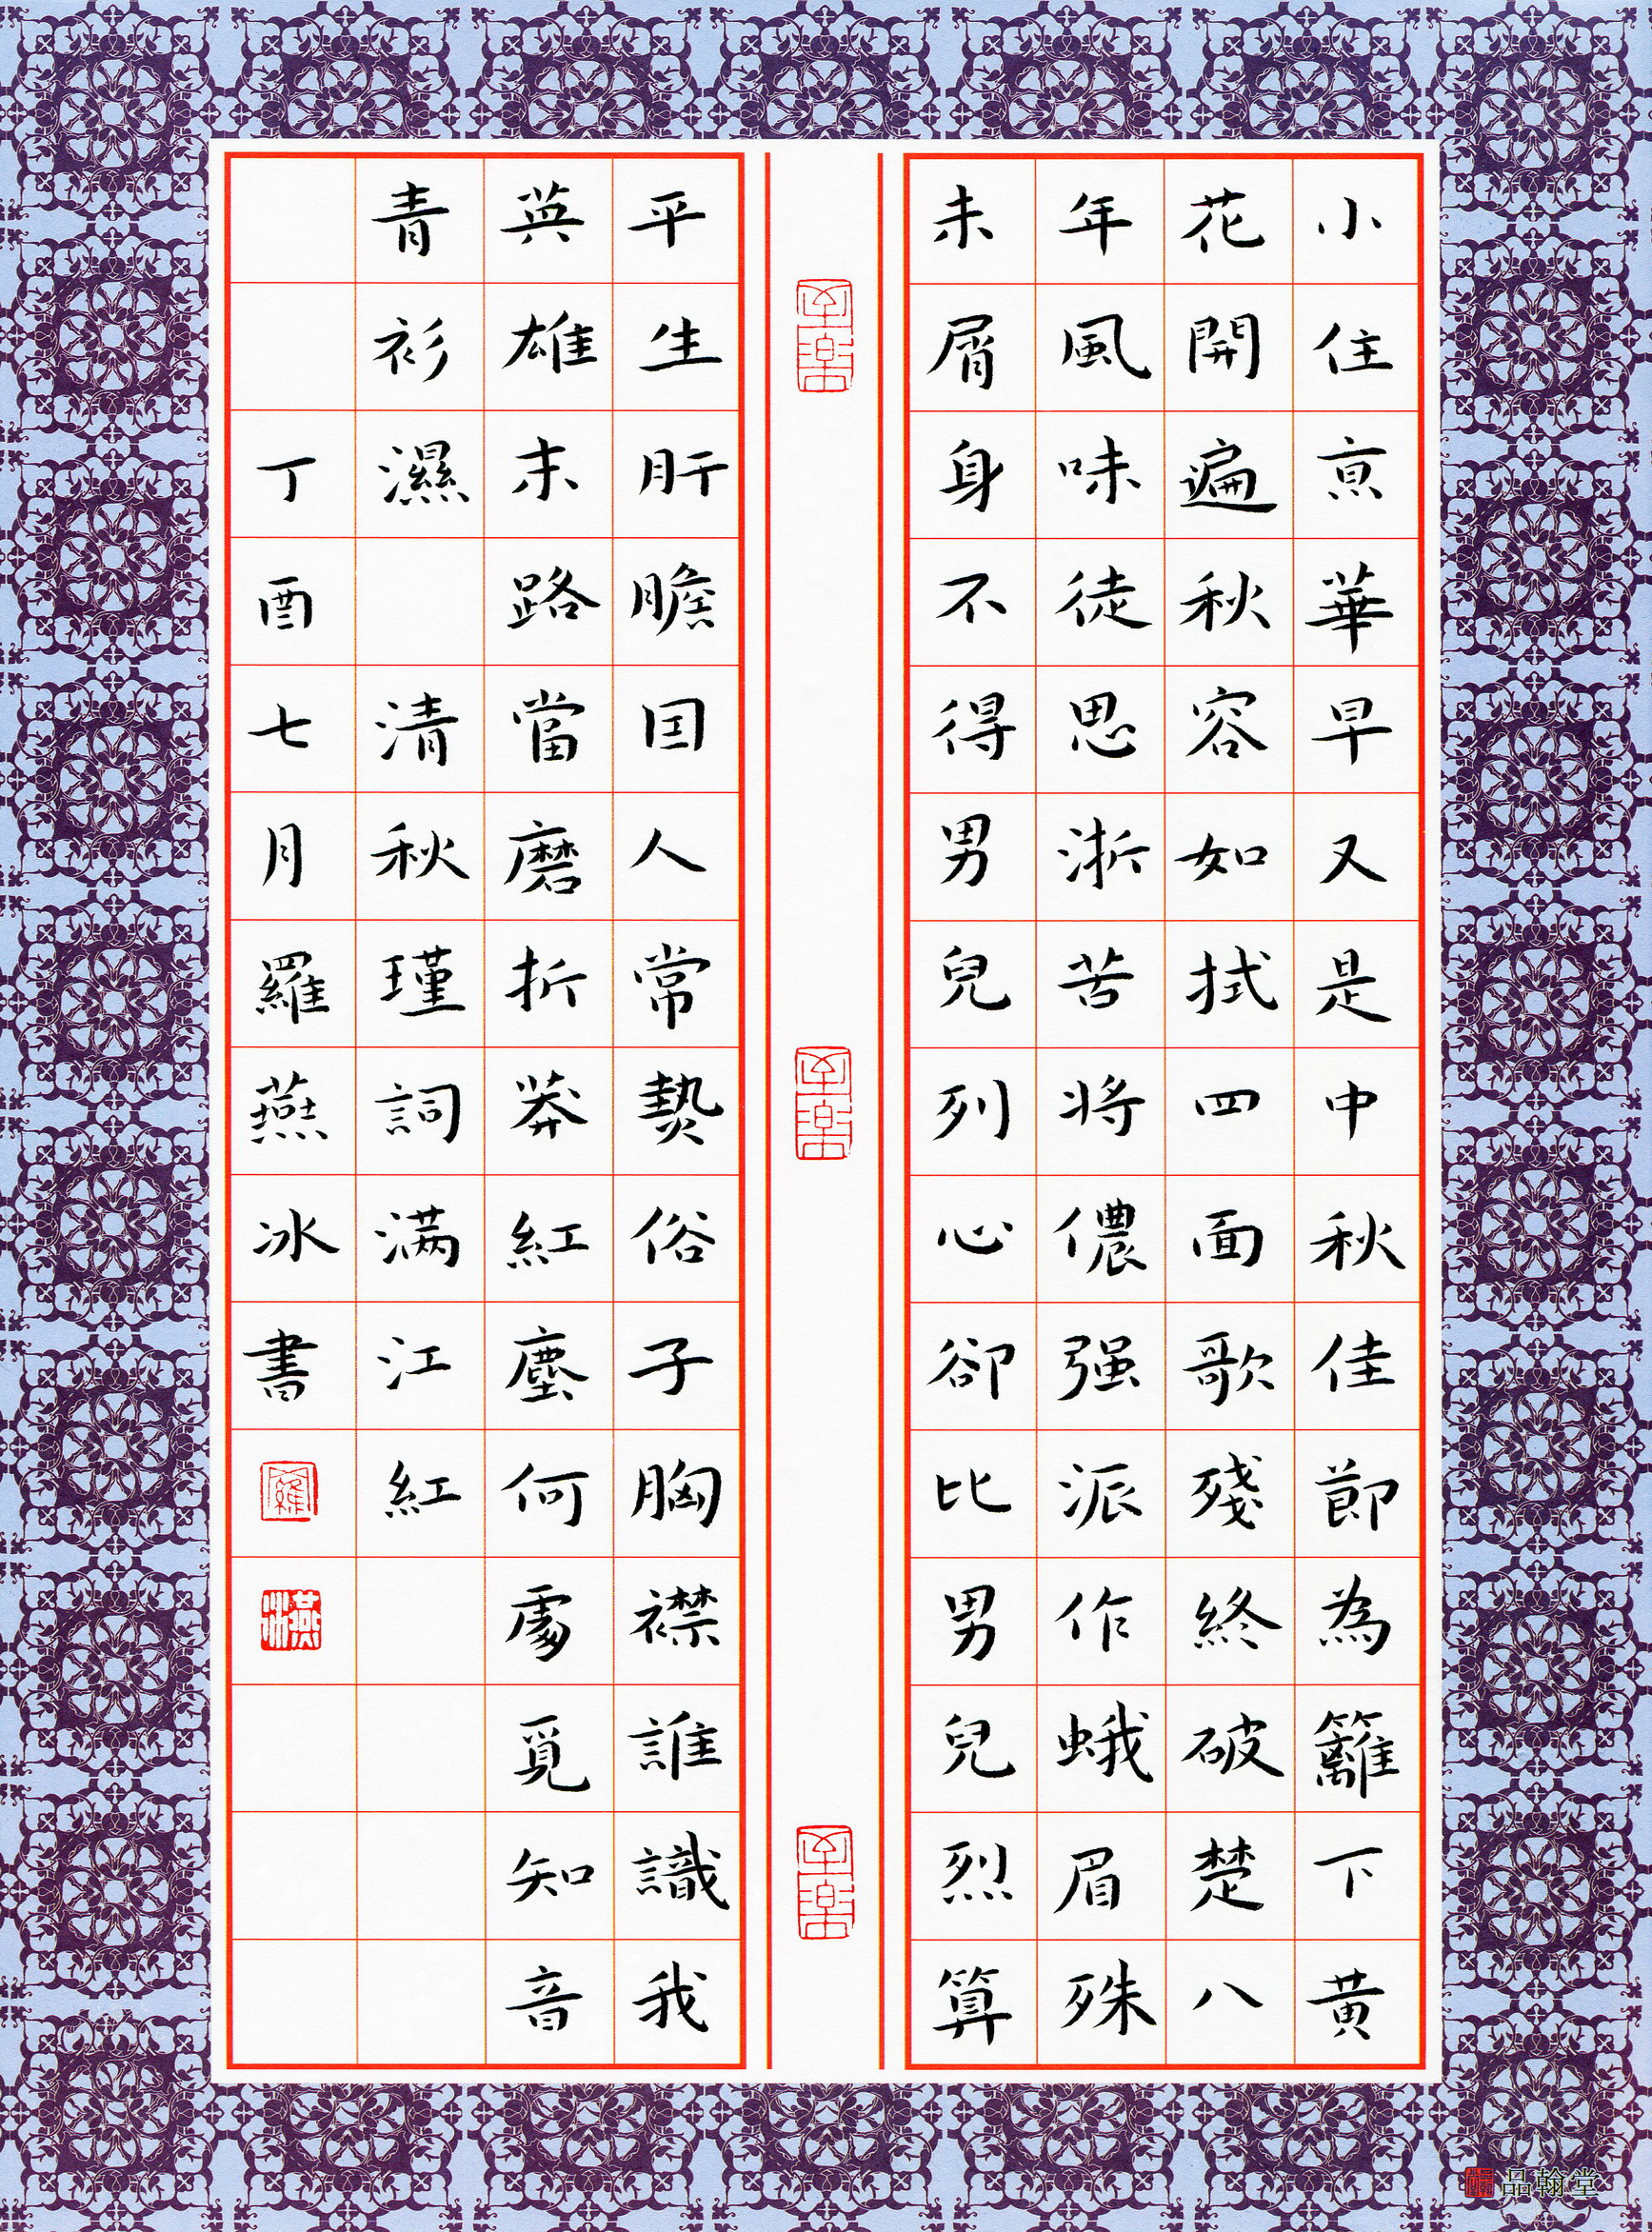 小住亰華早又是中秋佳節為籬下黄
花開遍秋容如拭四面歌殘終破楚八
年風味徒思浙苦将儂强派作蛾眉殊
未屑身不得男兒列心卻比男兒烈算
平生肝膽囙人常熱俗子胸襟誰識我
英雄末路當磨折莽紅塵何處覓知音
青衫濕 清秋瑾詞滿江紅
丁酉七月羅燕冰書
羅
燕冰
品翰堂